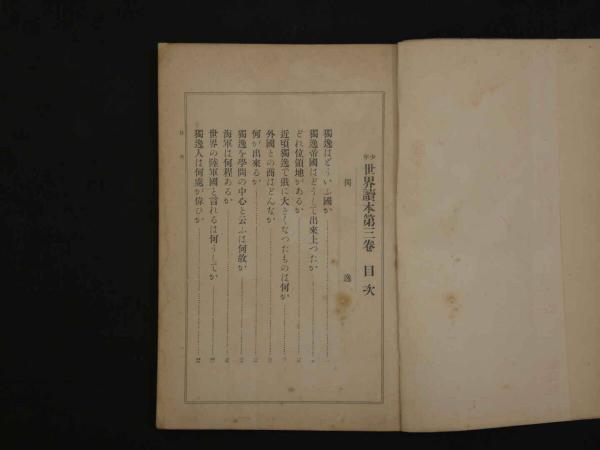 少年 世界讀本第三卷 目次
獨逸
獨逸はどういふ國か
獨逸帝國はどうして出來上つたか
どれ位領地があるか
近頃獨逸で俄に大きくなつたものは何か
外國との商はどんなか
何が出來るか
獨逸を學問の中心と云ふは何故か
海軍は何程あるか
世界の陸軍國と言れるは何うしてか
獨逸人は何處が偉ひか